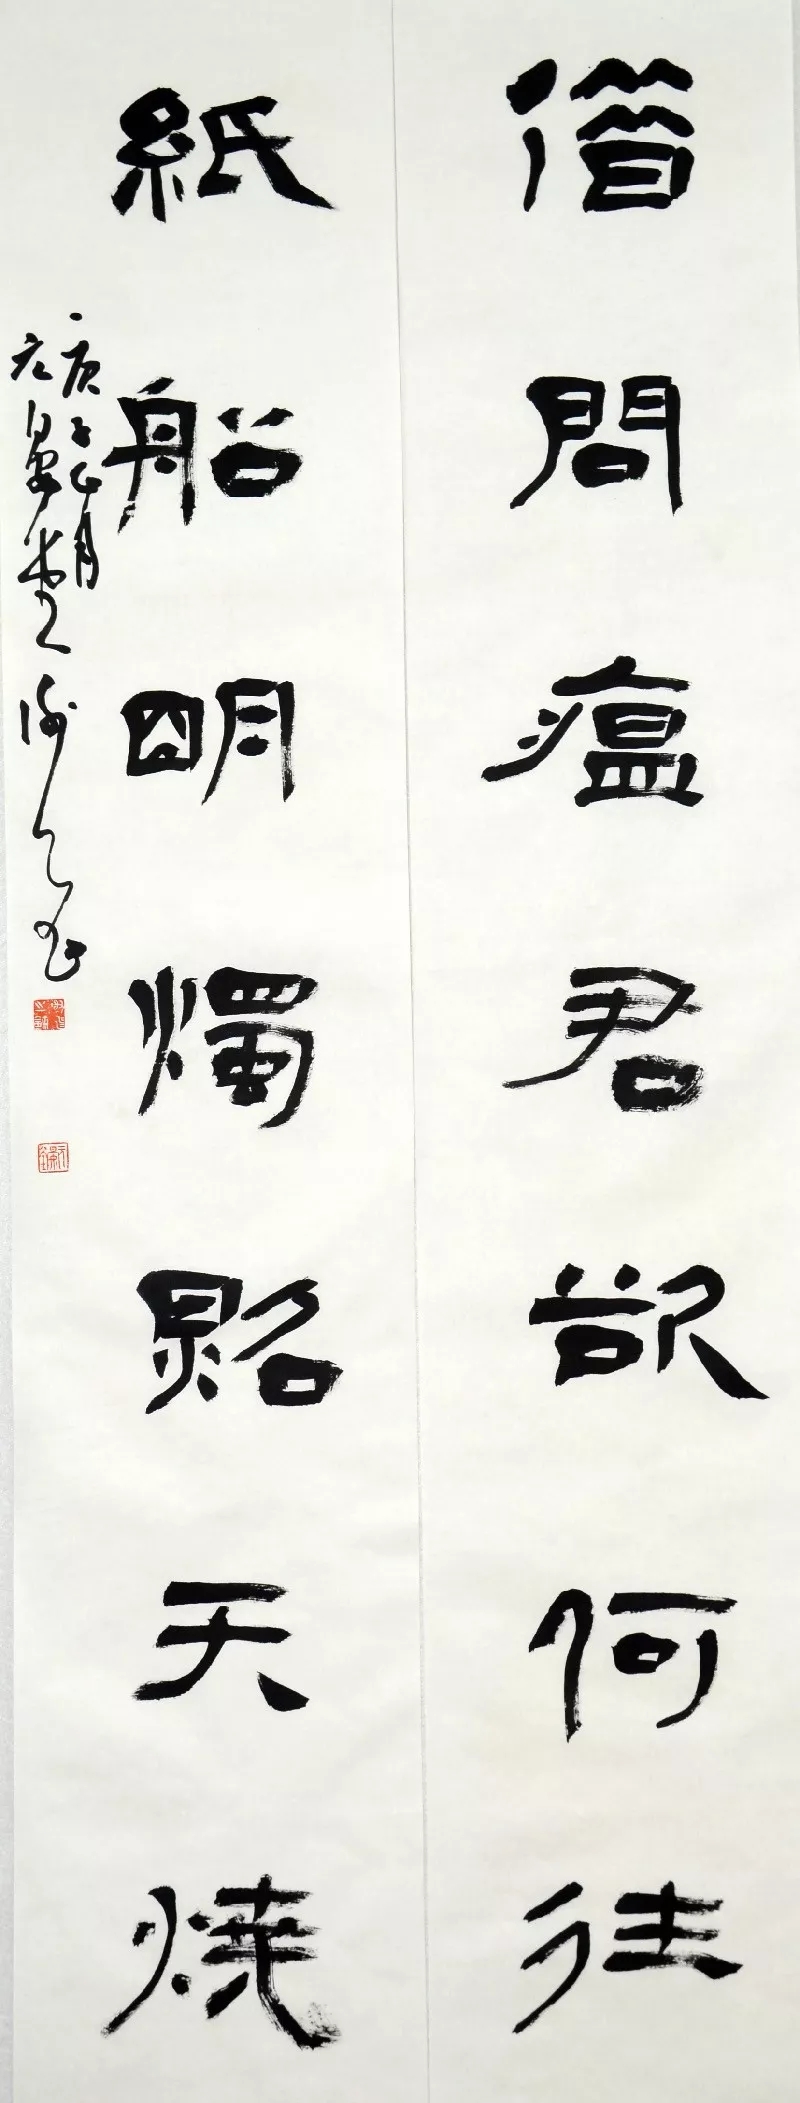 借問瘟君欲何往
紙船明燭照天燒
庚子正月